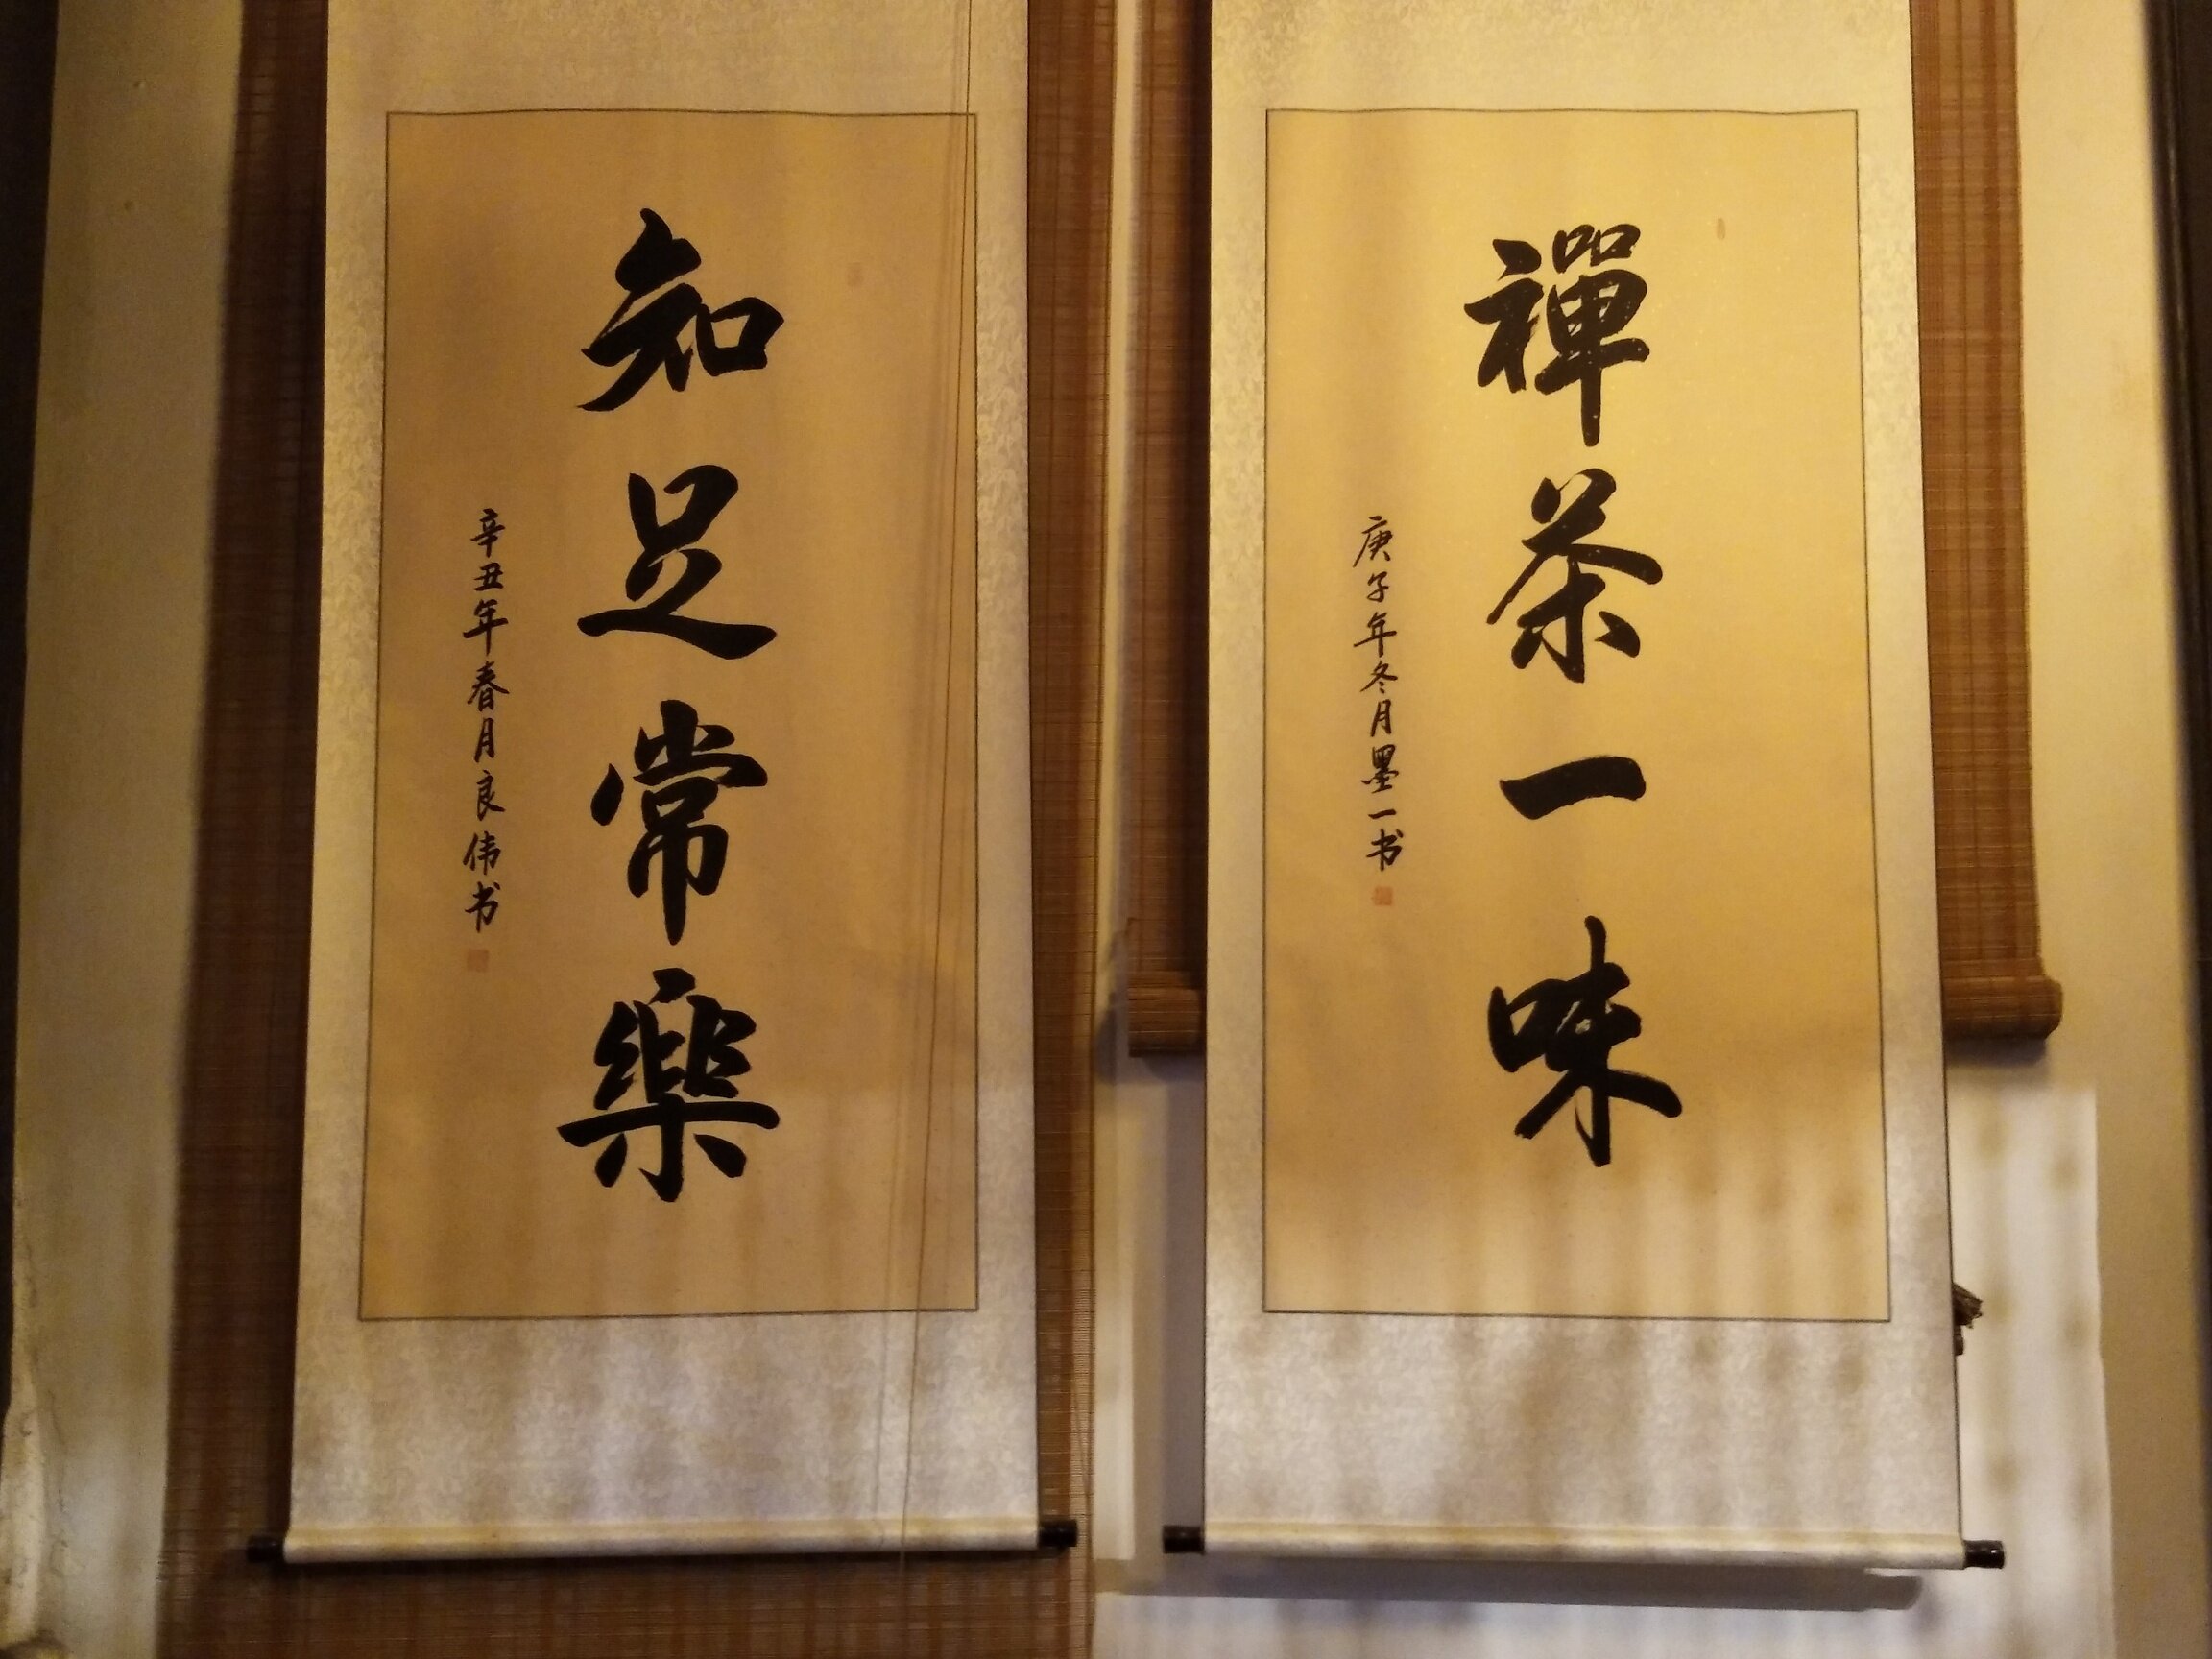 禪茶一味
庚子年冬月墨一书
知足常樂
辛丑年春月良伟书